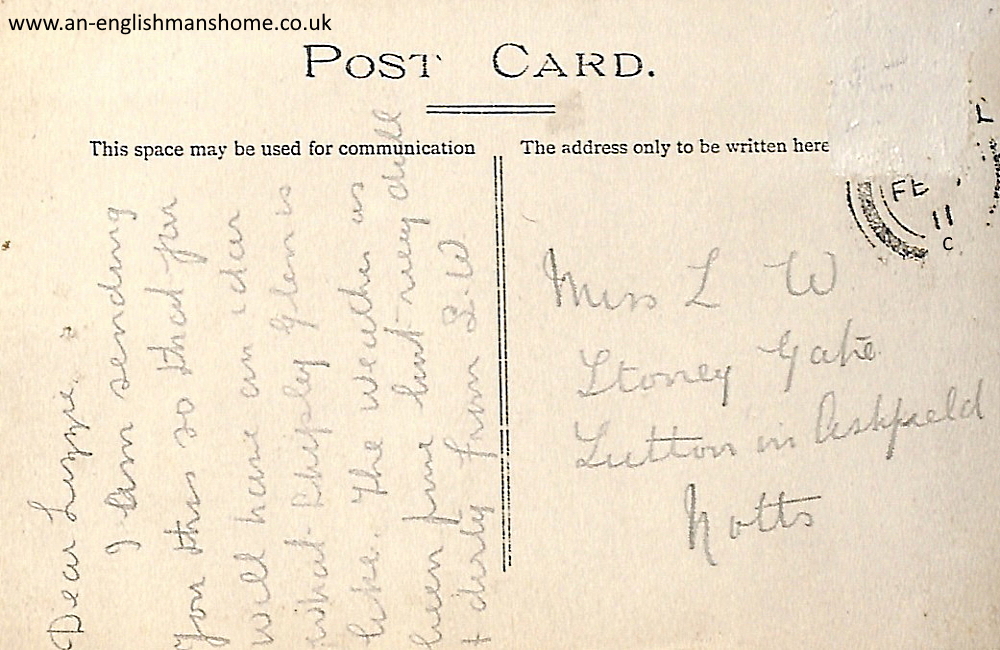 www.an-englishmanshome.co.uk
POST CARD.
This space may be used for communication
The address only to be written here
Dear Lizzie.
I am sending
you this so that you
will have an idea
what Shipley Glen is
like. The weather as
been fine but very dull
+ dirty from S.W
Miss L W
Stoney Gate
Sutton in Ashfield
Notts
FE
11
C
L